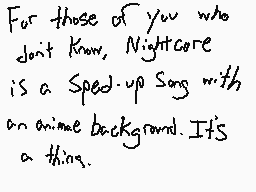 For those of you who
don't know, Nightcore
is a Sped-up Song with
an animae background. It's
a thing.